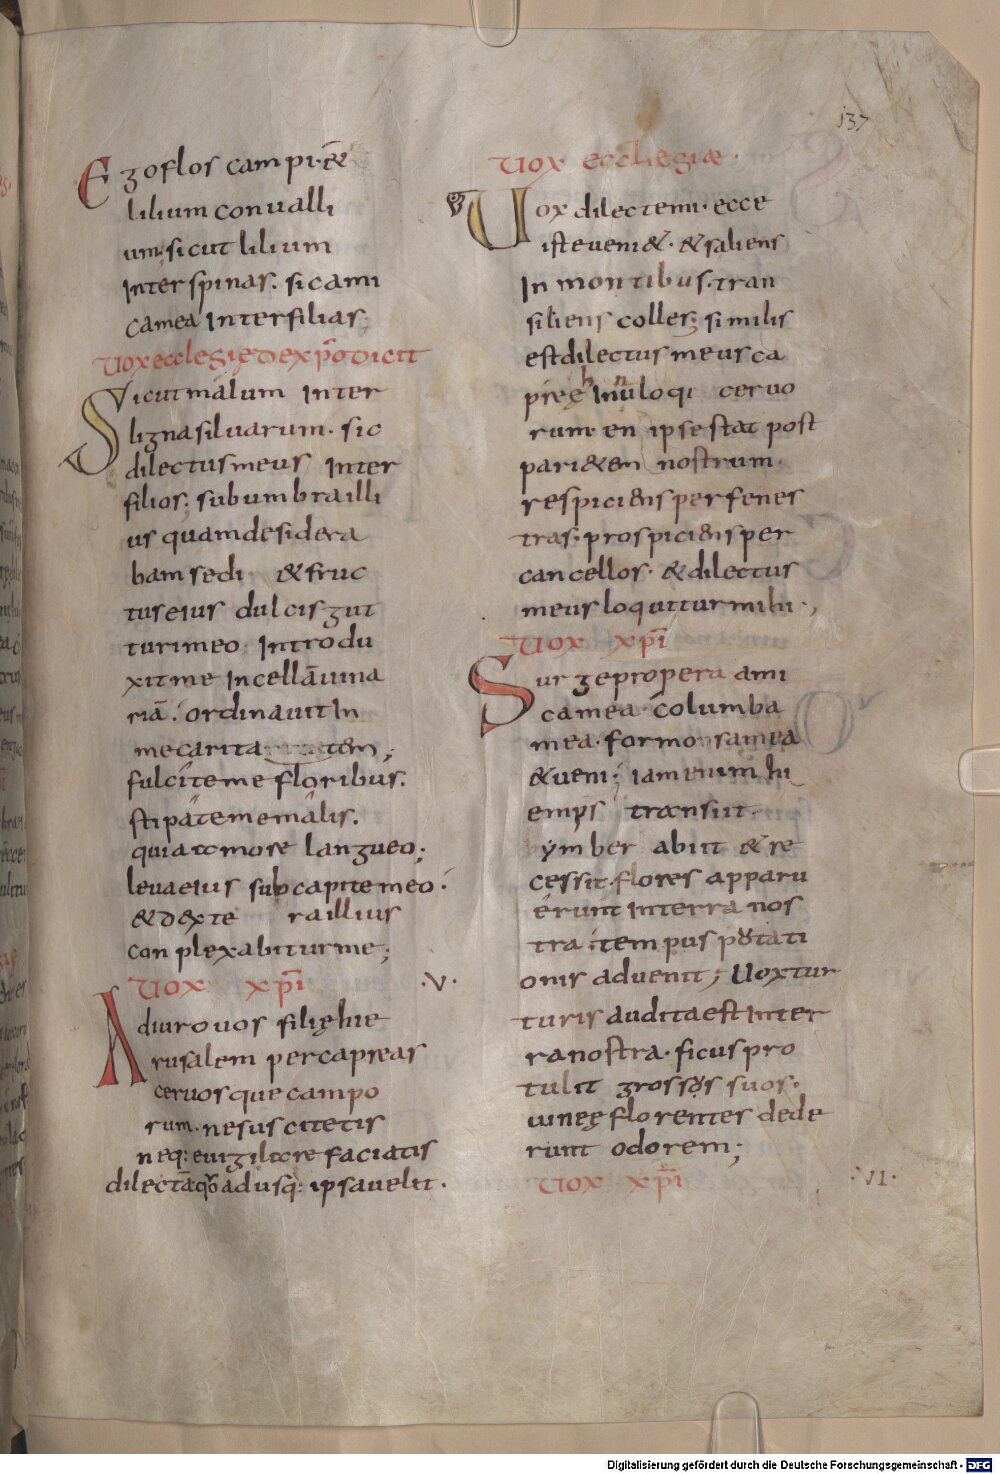 137
Ego flos campi· &
lilium conualli
um· sicut lilium
Inter spinas. sic ami
camea Inter filias;
Uox ecclegię de xp̄o dicit
Sicut malum Inter
ligna siluarum· sic
dilectus meus Inter
filios; sub umbra illi
us quam desidera
bam sedi & fruc
tus eius dulcis gut
turi meo Introdu
xit me In cellā uina
riā. ordinauit In
me carita tem;
fulcite me floribus.
stipate me malis.
quia amore langueo;
leua eius sub capite meo·
& dexte ra illius
conplexabitur me;
Uox xp̄i ·V·
Adiuro uos filię hie
rusalem per capreas
ceruos que campo
rum· ne suscitetis
neq: euigilare faciatis
dilectā quo adusq: ipsa uelit·
Uox ecclegiæ·
Uox dilecti mi· ecce
iste ueni&· & saliens
In montibus· tran
siliens colles; similis
est dilectus meus ca
pręę hInnuloqi ceruo
rum· en ipse stat post
pari&em nostrum·
respiciens per fenes
tras· prospiciens per
cancellos· & dilectus
meus loquitur mihi·,
Uox xp̄i
Surge propera ami
ca mea· columba
mea· formonsa mea
& ueni; iam enim hi
emps transiit·
ymber abiit & re
cessit· flores apparu
erunt In terra nos
tra· tempus putati
onis aduenit; Uox tur
turis audita est Inter
ra nostra· ficus pro
tulit grossos suos·
uineę florentes dede
runt odorem;
Uox xp̄i ·VI·
Digitalisierung gefördert durch die Deutsche Forschungsgemeinschaft - DFG